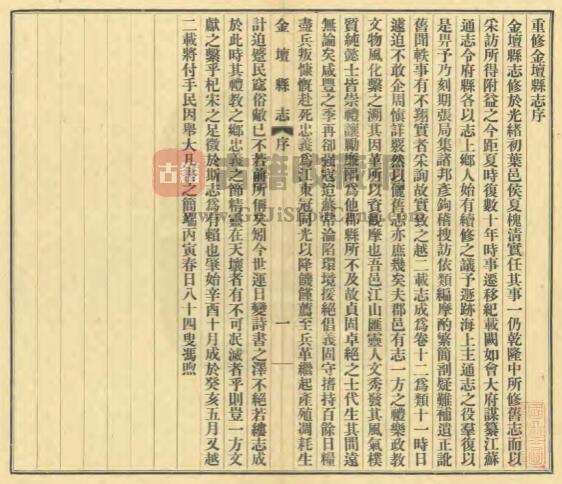 重修金壇縣志序
金壇縣志修於光緒初葉邑侯夏槐淸實任其事一仍乾隆中所修舊志而以
采訪所得附益之今距夏時復數十年時事遷移紀載闕如會大府謀纂江蘇
通志令府縣各以志上鄉人始有續修之議予遯跡海上主通志之役羣復以
是畀予乃刻期張局集諸邦彥鉤稽搜訪依類編摩酌繁簡剖疑難補遺正訛
舊聞軼事有不翔實者采詢故實致之越二載志成爲卷十二爲類十一時日
遽迫不敢企周愼詳覈然以儷舊志亦庶幾矣夫郡邑有志一方之禮樂政敎
文物風化繫之溯其因革所以資觀摩也吾邑江山匯靈人文秀發其風氣樸
質純懿士皆崇禮讓勵廉隅爲他郡縣所不及故貞固卓絕之士代生其間遠
無論矣咸豐之季再卻強寇迨蘇常淪陷環境援絕倡義固守搘持百餘日糧
盡兵叛慷慨赴死忠義爲江東冠同光以降饑饉薦至兵革繼起產殖凋耗生
金壇縣志 序 一
計迫蹙民窳俗敝已不若前所偁矣矧今世運日變詩書之澤不絕若縷志成
於此時其禮敎之鄉忠義之節精靈在天壤者有不可泯滅者乎則豈一方文
獻之繫乎杞宋之足徵於斯志爲有賴也肇始辛酉十月成於癸亥五月又越
二載將付手民因舉大凡書之簡端丙寅春日八十四叟馮煦
古籍
www.GuJiShuCang.com